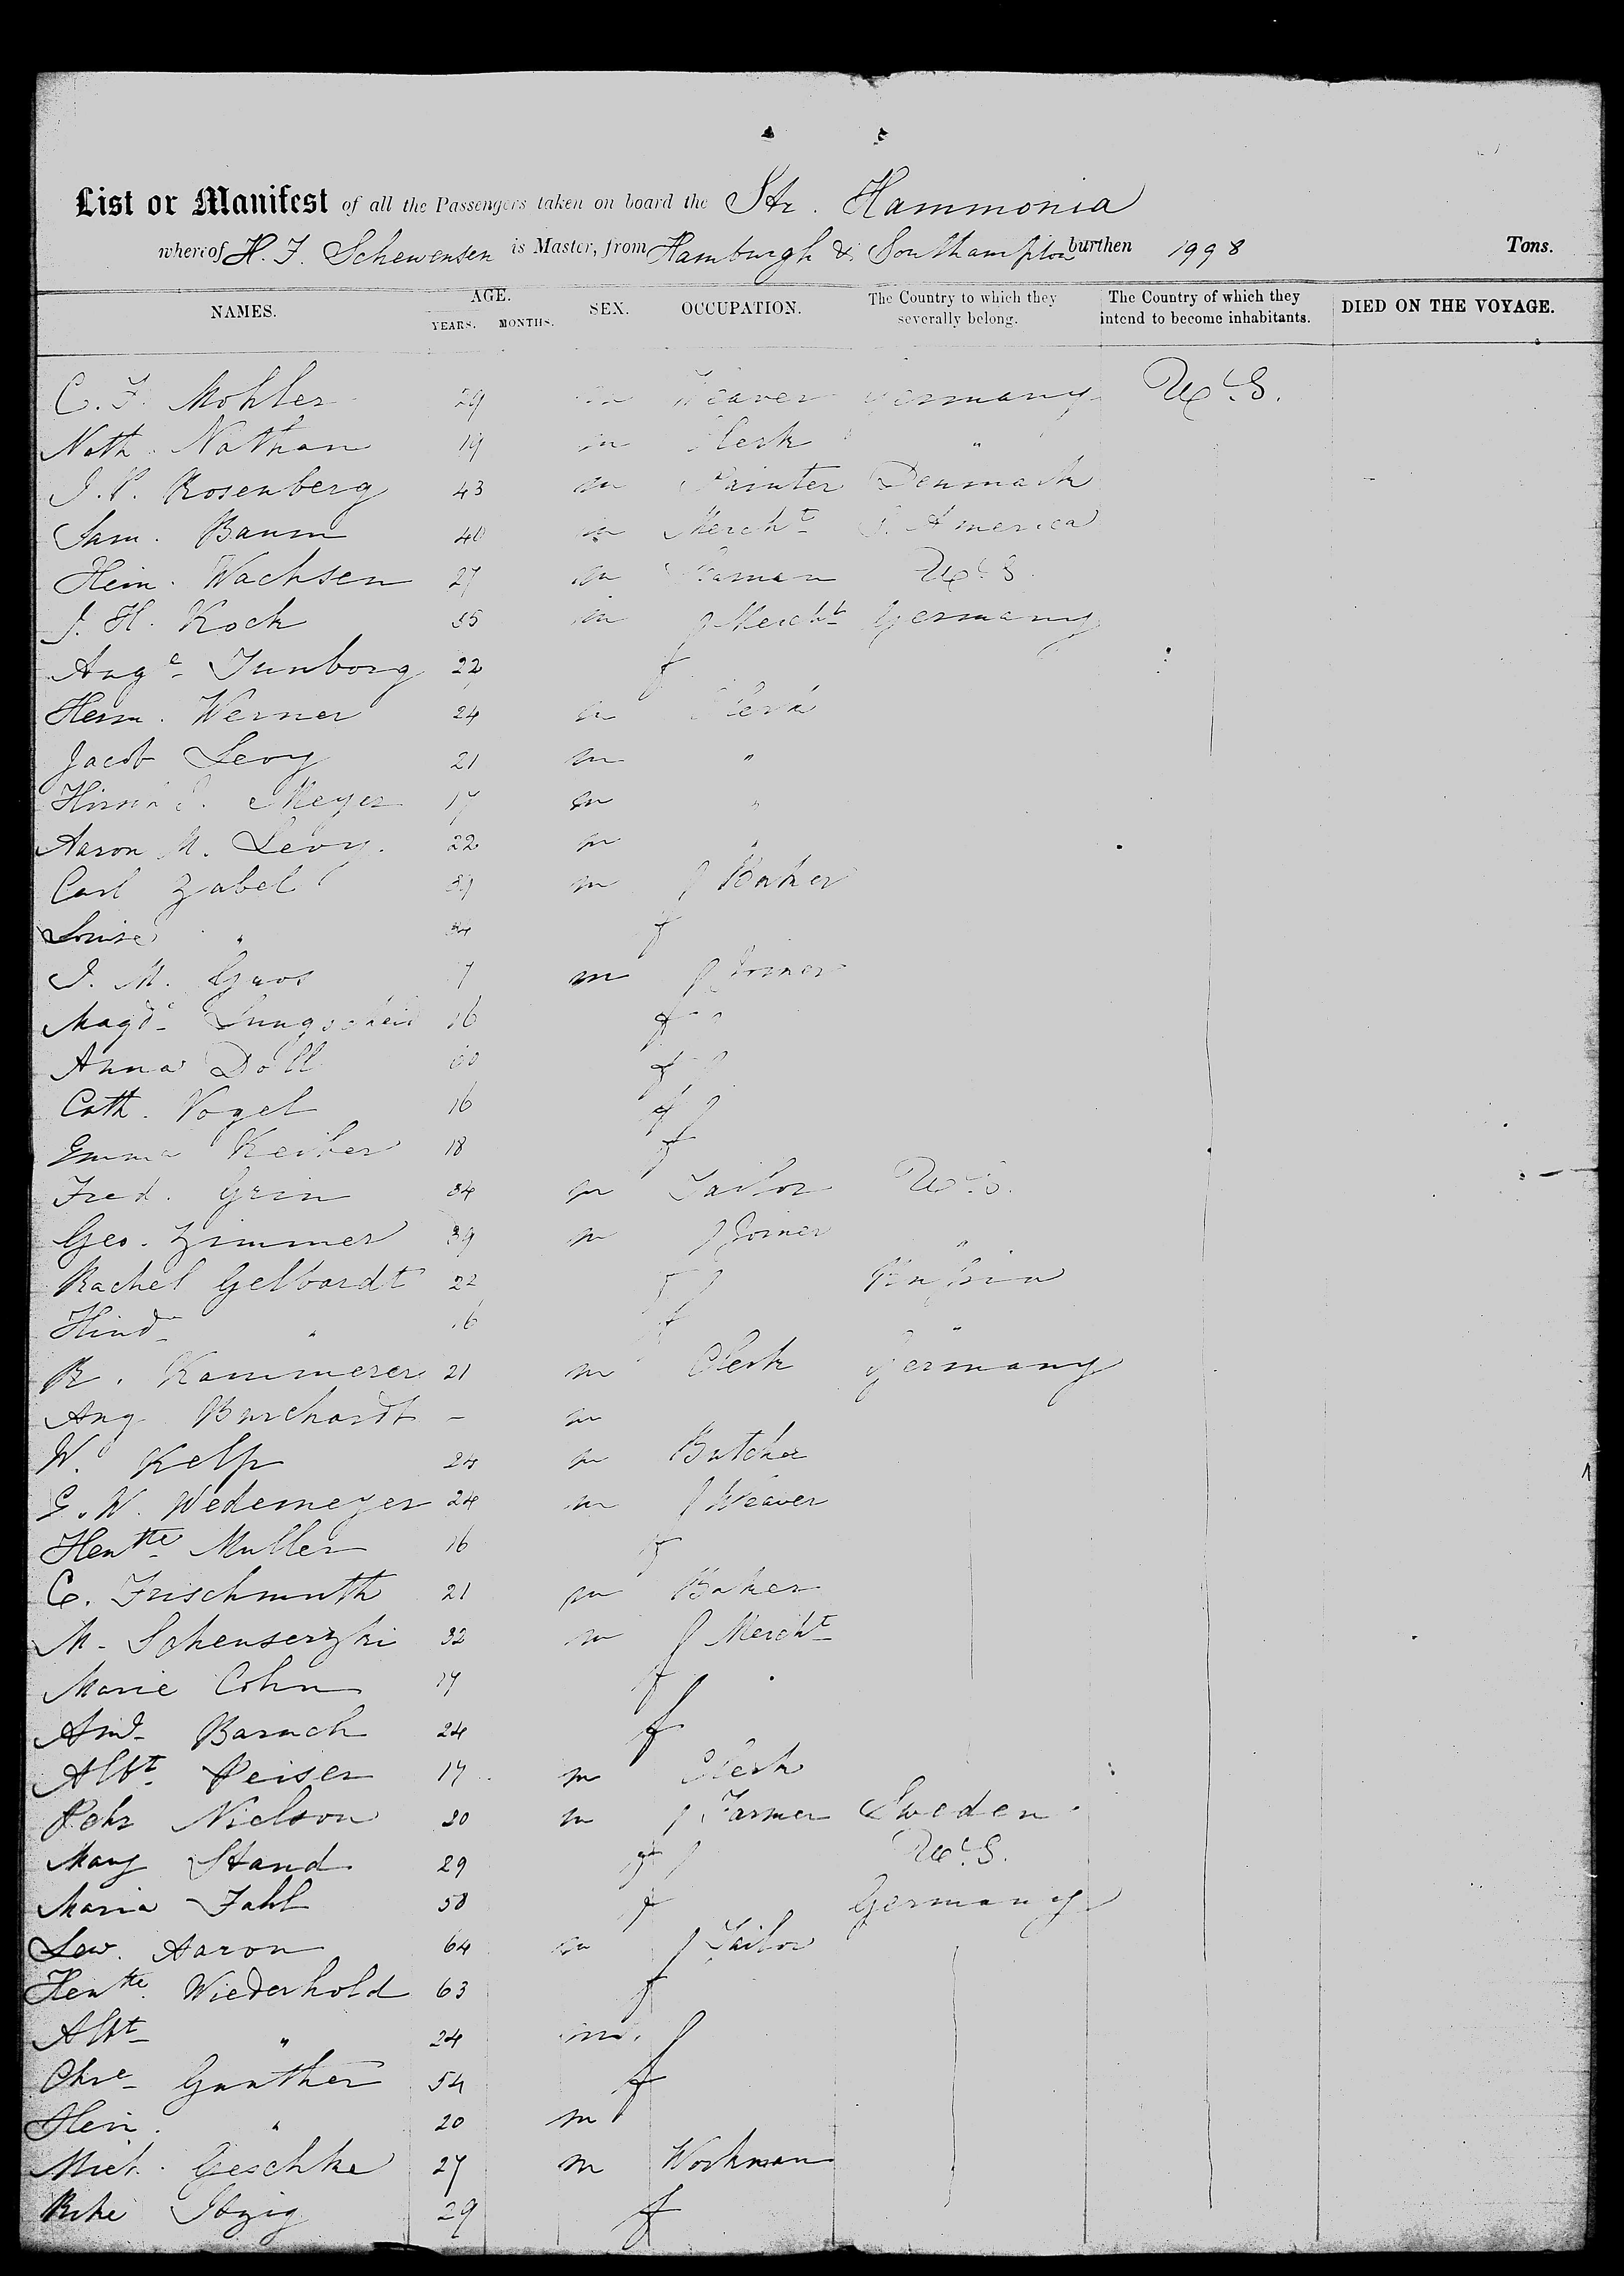 List or Manifest of all the Passengers taken on board the Str. Hammonia
whereof H. F. Schewensen is Master, from Hamburgh & Southampton burthen 1998 Tons.
NAMES. AGE. YEARS. MONTHS. SEX. OCCUPATION. The Country to which they severally belong. The Country of which they intend to become inhabitants. DIED ON THE VOYAGE.
C. F. Mohler 29 m Weaver Germany U.S.
Nath. Nathan 19 m Clerk "
J. P. Rosenberg 43 m Painter Denmark
Sam. Baum 40 m Mercht S. America
Hein. Wachsen 27 m Seaman U.S.
J. H. Koch 35 m Mercht Germany
Auge Junborg 22 f
Herm. Werner 24 m Clerk
Jacob Levy 21 m "
Meyer 17 m "
Aaron M. Levy. 22 m "
Carl Zabel 39 m Baker
Louise " 34 f
J. M. Gros 17 m Joiner
Magde 16 f
Anna Doll f
Cath. Vogel 16 f
Emma Keiber 18 f
Fred. Grin 34 m Tailor U.S.
Geo. Zimmer 39 m Joiner "
Rachel Gelbardt 22 f Russia
Hinde " 16 f "
R. Kammerer 21 m Clerk Germany
Aug Burchardt - m
W. Kelp 24 m Butcher
G. W. Wedemeyer 24 m Weaver
Hentte Muller 16 f
C. Frischmuth 21 m Baker
M. Schenserzki 32 m Mercht
Marie Cohn 17 f
Amd Baruch 24 f
Albt Peiser 17 m Clerk
Pehr Nielson 30 m Farmer Sweden
Mary Stand 29 f U.S.
Maria Fahl 50 f Germany
Lew. Aaron 64 m Tailor
Hentte Wiederhold 63 f
Albt " 24 m.
Chre Gunther 54 f
Hein. " 20 m
Mich. Geschke 27 m Workman
Rike Itzig 29 f